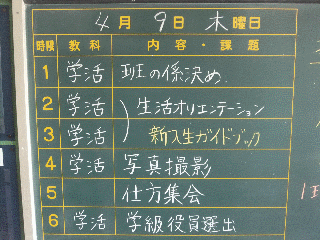 4月9日木曜日
時限 教科 内容・課題
1 学活 班の係決め
2 学活 生活オリエンテーション
3 学活 新入生ガイドブック
4 学活 写真撮影
5 仕方集会
6 学活 学級役員選出